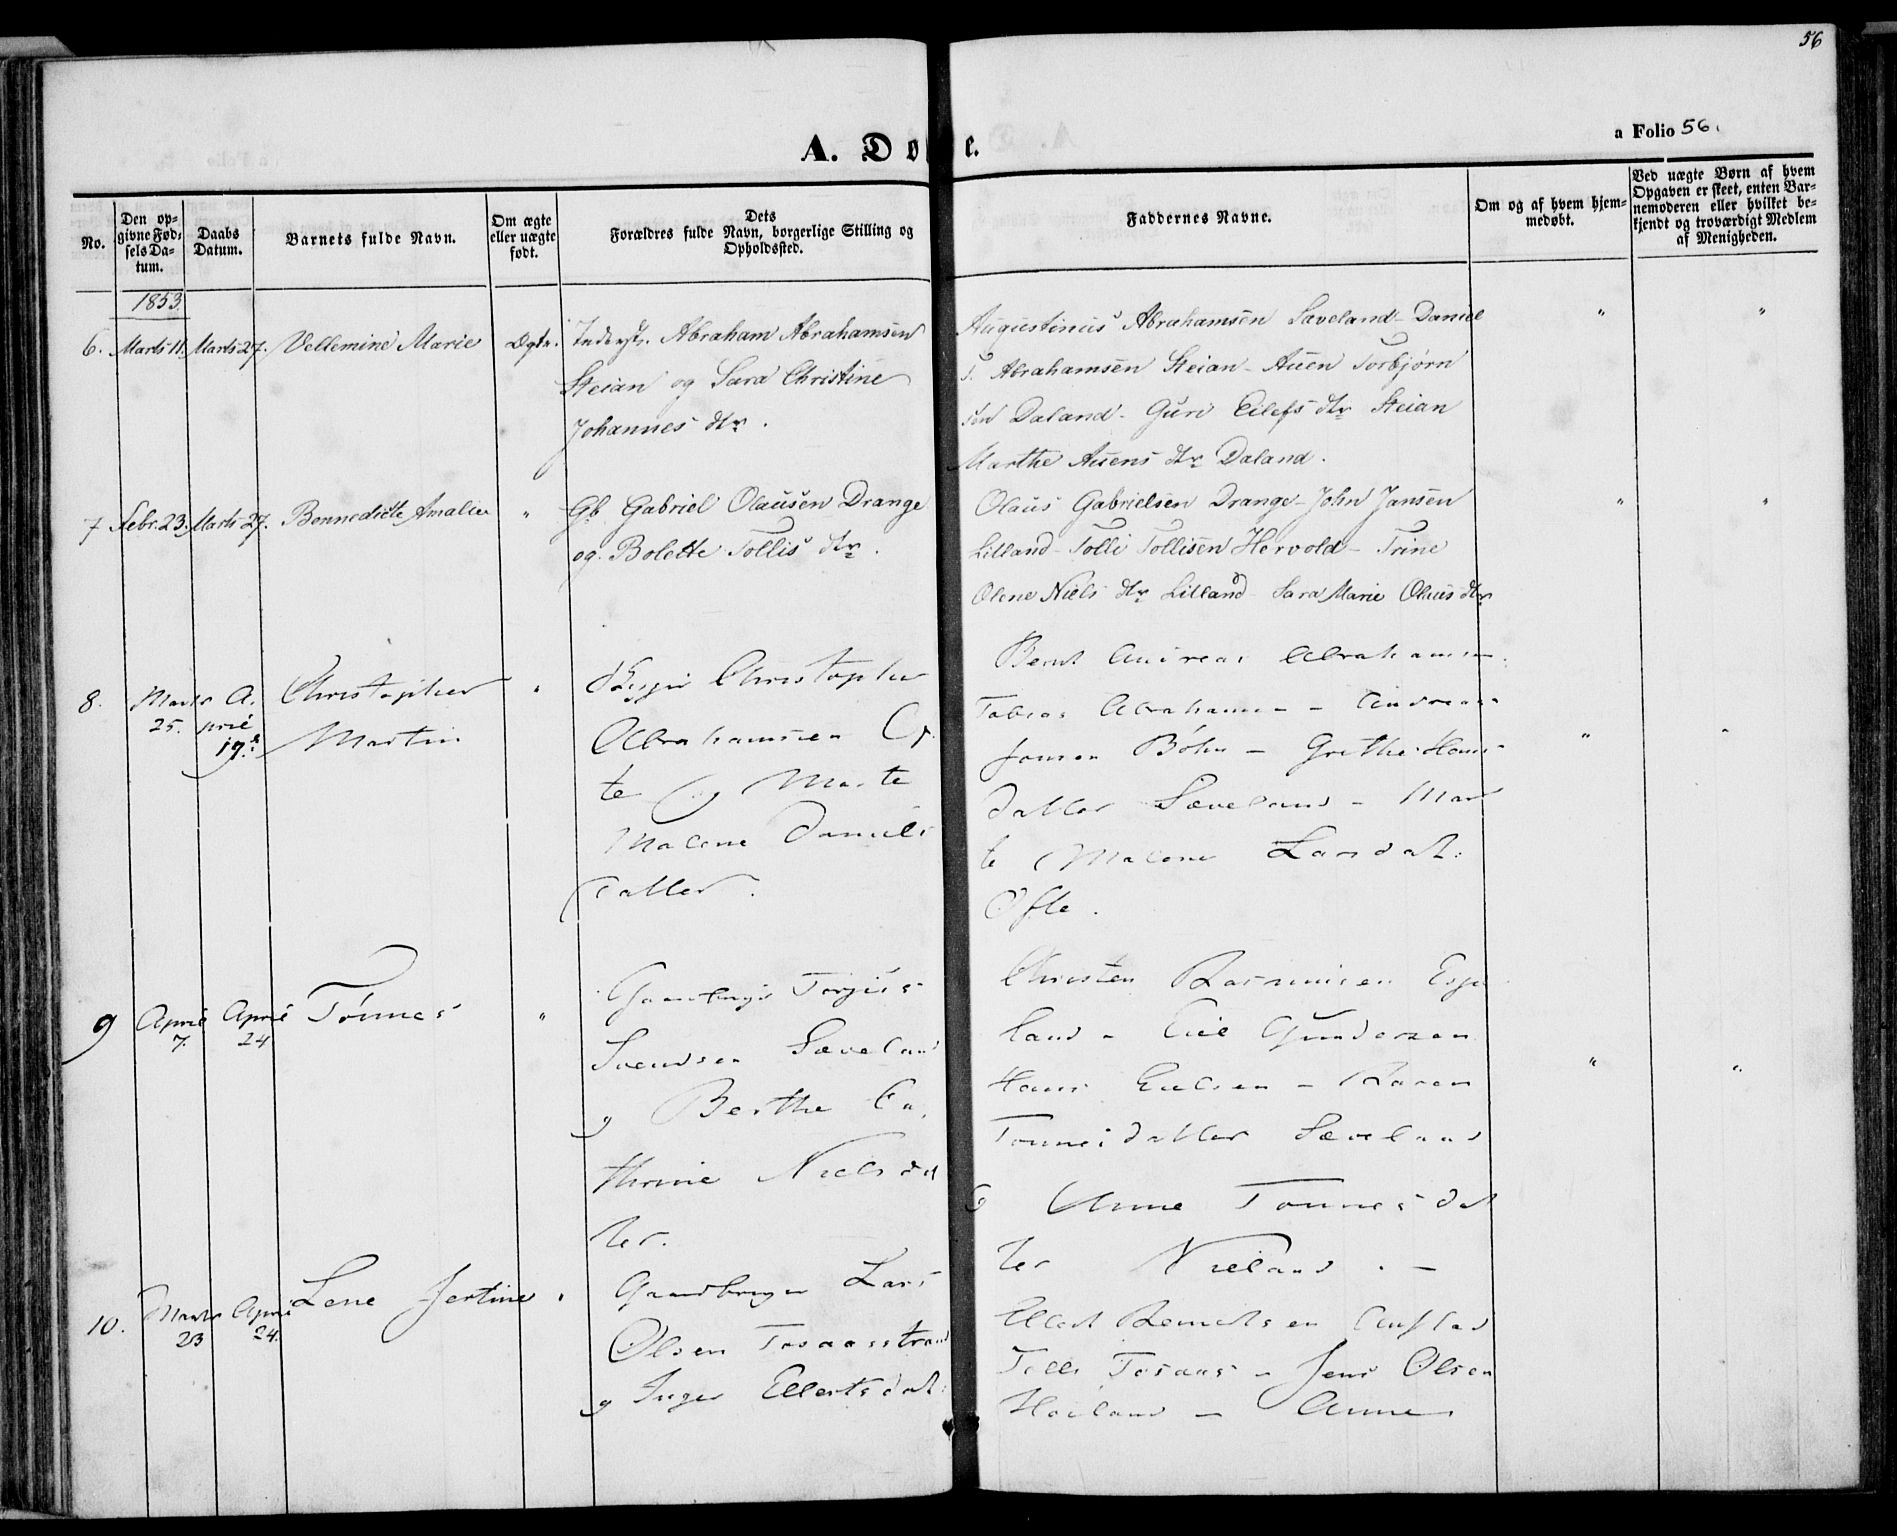 56
a Folio 56.
A. Døbte.
No.
Den op-
givne Fød-
sels Da-
tum.
Daabs
Datum.
Barnets fulde Navn.
Om ægte
eller uægte
født.
Dets
Forældres fulde Navn, borgerlige Stilling og
Opholdssted.
Faddernes Navne.
Om og af hvem hjem-
medøbt.
Ved uægte Børn af hvem
Opgaven er skeet, enten Bar-
nemoderen eller hvilket be-
kjendt og troværdigt Medlem
af Menigheden.
1853
6. Marts 11. Marts 27. Vellemine Marie Abraham Abrahamsen
Steian og Sara Christine
Johannes dtr.
Augustinus Abrahamsen Sæveland - Daniel
Abrahamsen Steian - Auen Torbjørn
sen Daland - Guri Eilefs dtr Steian
Marthe Auens dtr Daland.
" "
7 Febr. 23. Marts 27. Bennedicte Amalie " Gb Gabriel Olausen Drange
og Bolette Tollis dtr.
Olaus Gabrielsen Drange - John Jansen
Lilland - Tolli Tollisen Hervold - Trine
Olene Niels dtr Lilland - Sara Marie Olaus dtr
" "
8. Marts 25. A-
pril
17de
Christopher
Martin
"
Christopher
Abrahamsen
te og Marte
Malene Daniels
datter.
Bernt Andreas Abrahamsen
Tobias Abrahamsen - Andreas
Jonsen Bøhn - Grethe Hans
datter Sæveland - Mar
te Malene Larsdat:
Øfte.
" "
9 April 7. April 24 Tönnes "
Gaardbrugr Torjus
Svendsen Sæveland
og Berthe Ca
thrine Nielsdat
ter.
Christen Rasmusen Espe
land - Gundersen
Hans - Karen
Tønnesdatter Sæveland
Anne Tønnesdat
ter
" "
10. Marts 23 April 24. Lene Jertine "
Gaardbruger Lars
Olsen Tosaasstrand
og Inger Ellertsdat:
Ellert Berentsen
Tolli Tosaas - Jens Olsen
Høiland - Anne